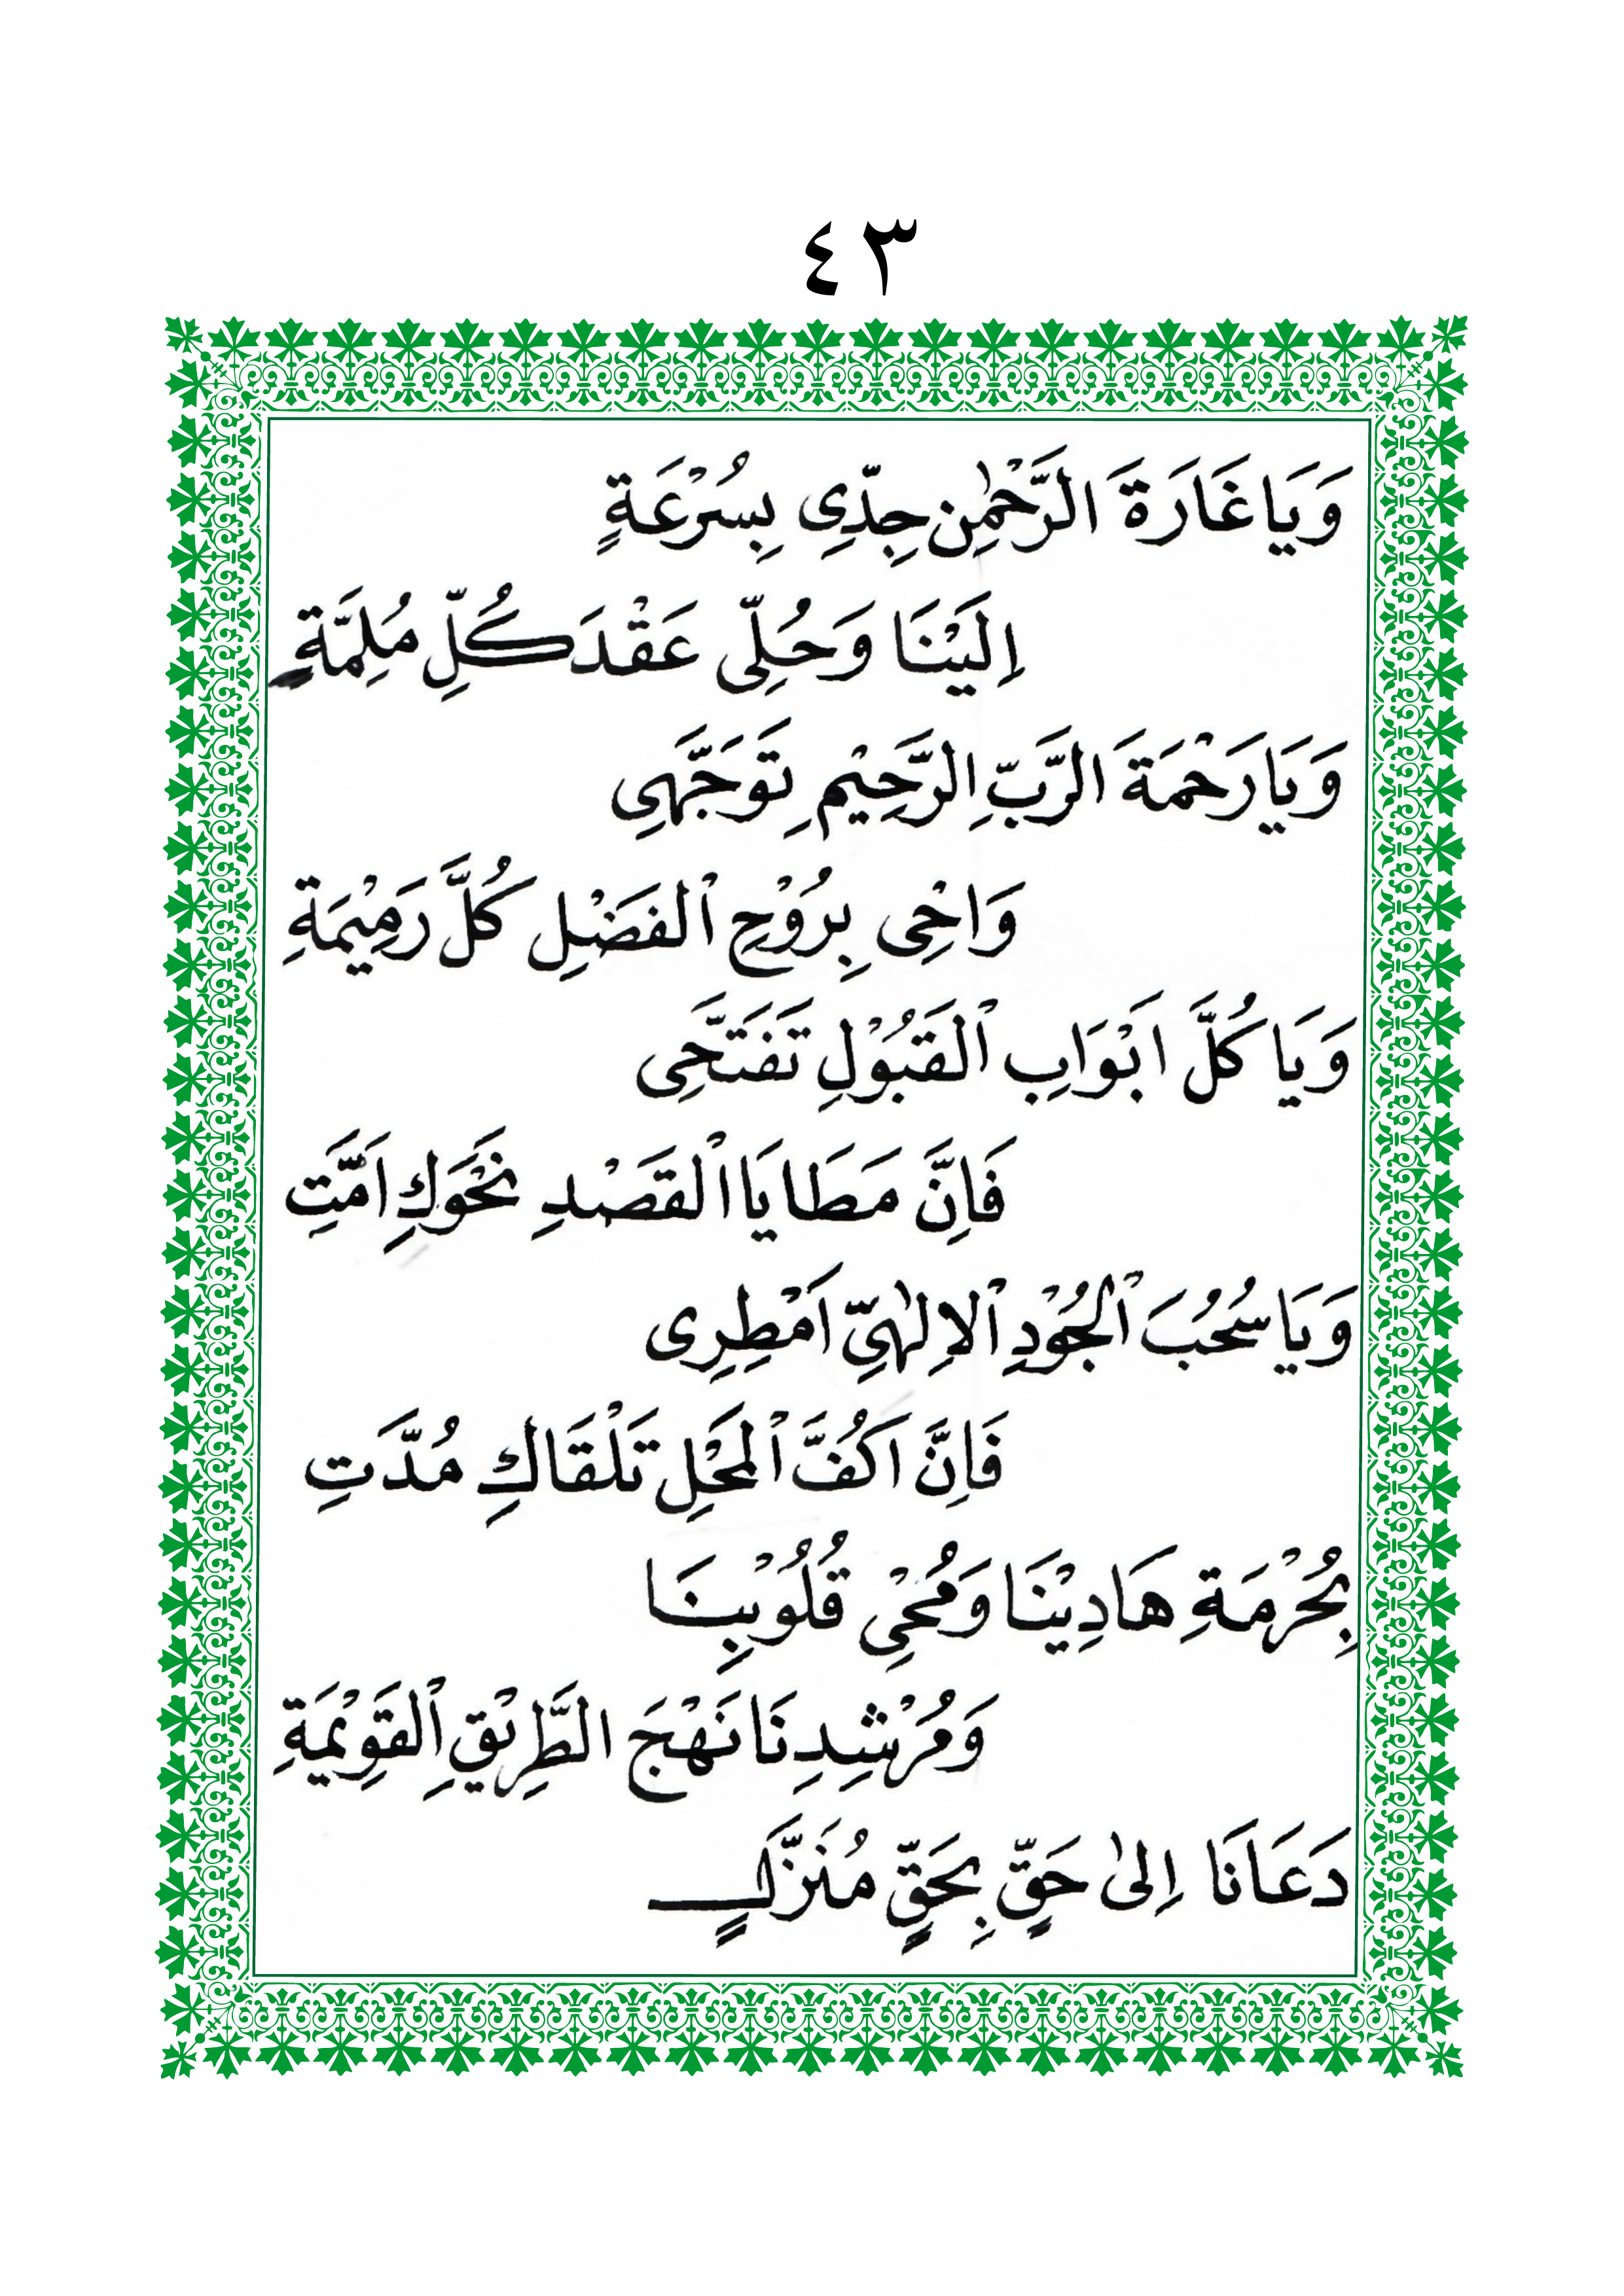 ٤٣
وَيَا غَارَةَ الرَّحْمٰنِ جِدِّى بِسُرْعَةٍ
اِلَيْنَا وَحُلِّى عَقْدَ كُلِّ مُلِمَّةٍ
وَيَا رَحْمَةَ الرَّبِّ الرَّحِيْمِ تَوَجَّهِى
وَاحْىِ بِرُوْحِ ٱلْفَضْلِ كُلَّ رَمِيْمَةِ
وَيَا كُلَّ اَبْوَابِ ٱلْقَبُوْلِ تَفَتَّحِى
فَاِنَّ مَطَايَا ٱلْقَصْدِ نَحْوَكِ اَمَّتِ
وَيَا سُحُبَ ٱلْجُوْدِ ٱلاِلٰهِىِّ اَمْطِرِى
فَاِنَّ اَكُفَّ ٱلْمَحْلِ تَلْقَاكِ مُدَّتِ
بِحُرْمَةِ هَادِيْنَا وَمُحْىِ قُلُوْبِنَا
وَمُرْشِدِنَا نَهْجَ الطَّرِيْقِ ٱلْقَوِيْمَةِ
دَعَانَا اِلىٰ حَقٍّ بِحَقٍّ مُنَزَّلٍ